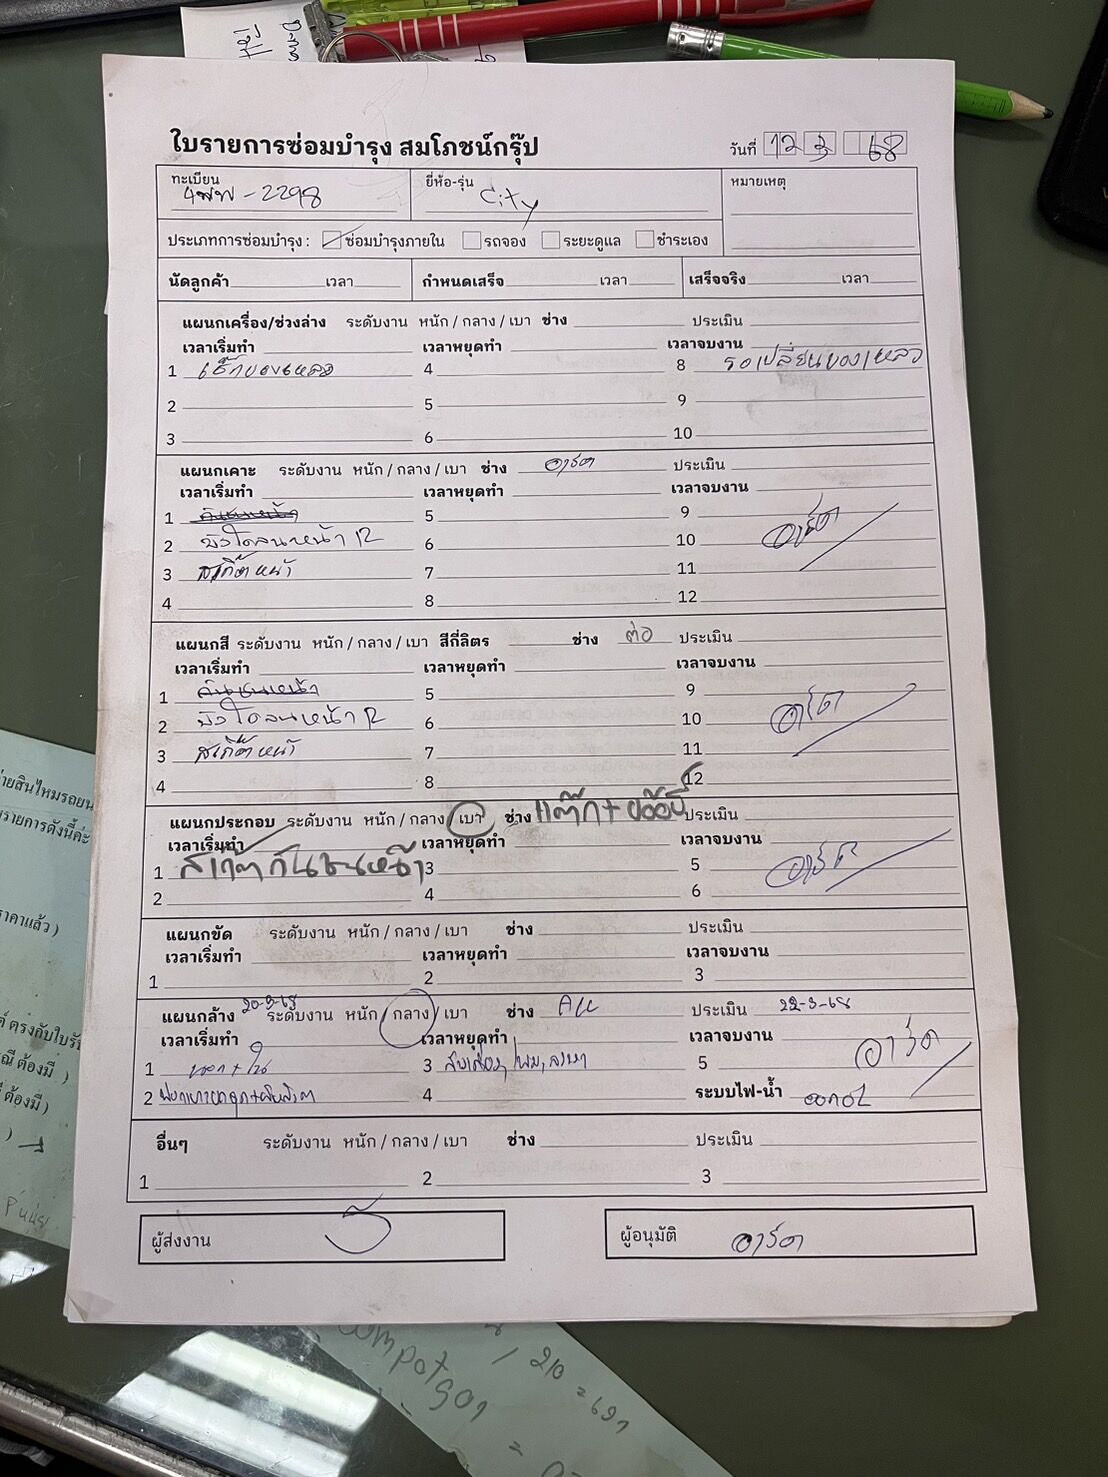 ใบรายการซ่อมบำรุง สมโภชน์กรุ๊ป
วันที่ 12 3 68
ทะเบียน 4พพ-2298 ยี่ห้อ-รุ่น City หมายเหตุ
ประเภทการซ่อมบำรุง : ซ่อมบำรุงภายใน รถจอง ระยะดูแล ชำระเอง
นัดลูกค้า เวลา กำหนดเสร็จ เวลา เสร็จจริง เวลา
แผนกเครื่อง/ช่วงล่าง ระดับงาน หนัก / กลาง / เบา ช่าง ประเมิน
เวลาเริ่มทำ เวลาหยุดทำ เวลาจบงาน
1 เช็คของเหลว 4 8 รอเปลี่ยนของเหลว
2 5 9
3 6 10
แผนกเคาะ ระดับงาน หนัก / กลาง / เบา ช่าง อาร์ต ประเมิน
เวลาเริ่มทำ เวลาหยุดทำ เวลาจบงาน
1 กันชนหน้า 5 9
2 บังโคลนหน้า R 6 10 อาร์ต
3 สเกิ๊ตหน้า 7 11
4 8 12
แผนกสี ระดับงาน หนัก / กลาง / เบา สีกี่ลิตร ช่าง ต่อ ประเมิน
เวลาเริ่มทำ เวลาหยุดทำ เวลาจบงาน
1 กันชนหน้า 5 9
2 บังโคลนหน้า R 6 10 อาร์ต
3 สเกิ๊ตหน้า 7 11
4 8 12
แผนกประกอบ ระดับงาน หนัก / กลาง / เบา ช่าง ประเมิน
เวลาเริ่มทำ เวลาหยุดทำ เวลาจบงาน
1 สเกิ๊ตกันชนหน้า 3 5 อาร์ต
2 4 6
แผนกขัด ระดับงาน หนัก / กลาง / เบา ช่าง ประเมิน
เวลาเริ่มทำ เวลาหยุดทำ เวลาจบงาน
1 2 3
แผนกล้าง 20-3-68 ระดับงาน หนัก / กลาง / เบา ช่าง All ประเมิน 22-3-68
เวลาเริ่มทำ เวลาหยุดทำ เวลาจบงาน
1 นอก+ใน 3 5 อาร์ต
2 4 ระบบไฟ-น้ำ
อื่นๆ ระดับงาน หนัก / กลาง / เบา ช่าง ประเมิน
1 2 3
ผู้ส่งงาน ผู้อนุมัติ อาร์ต